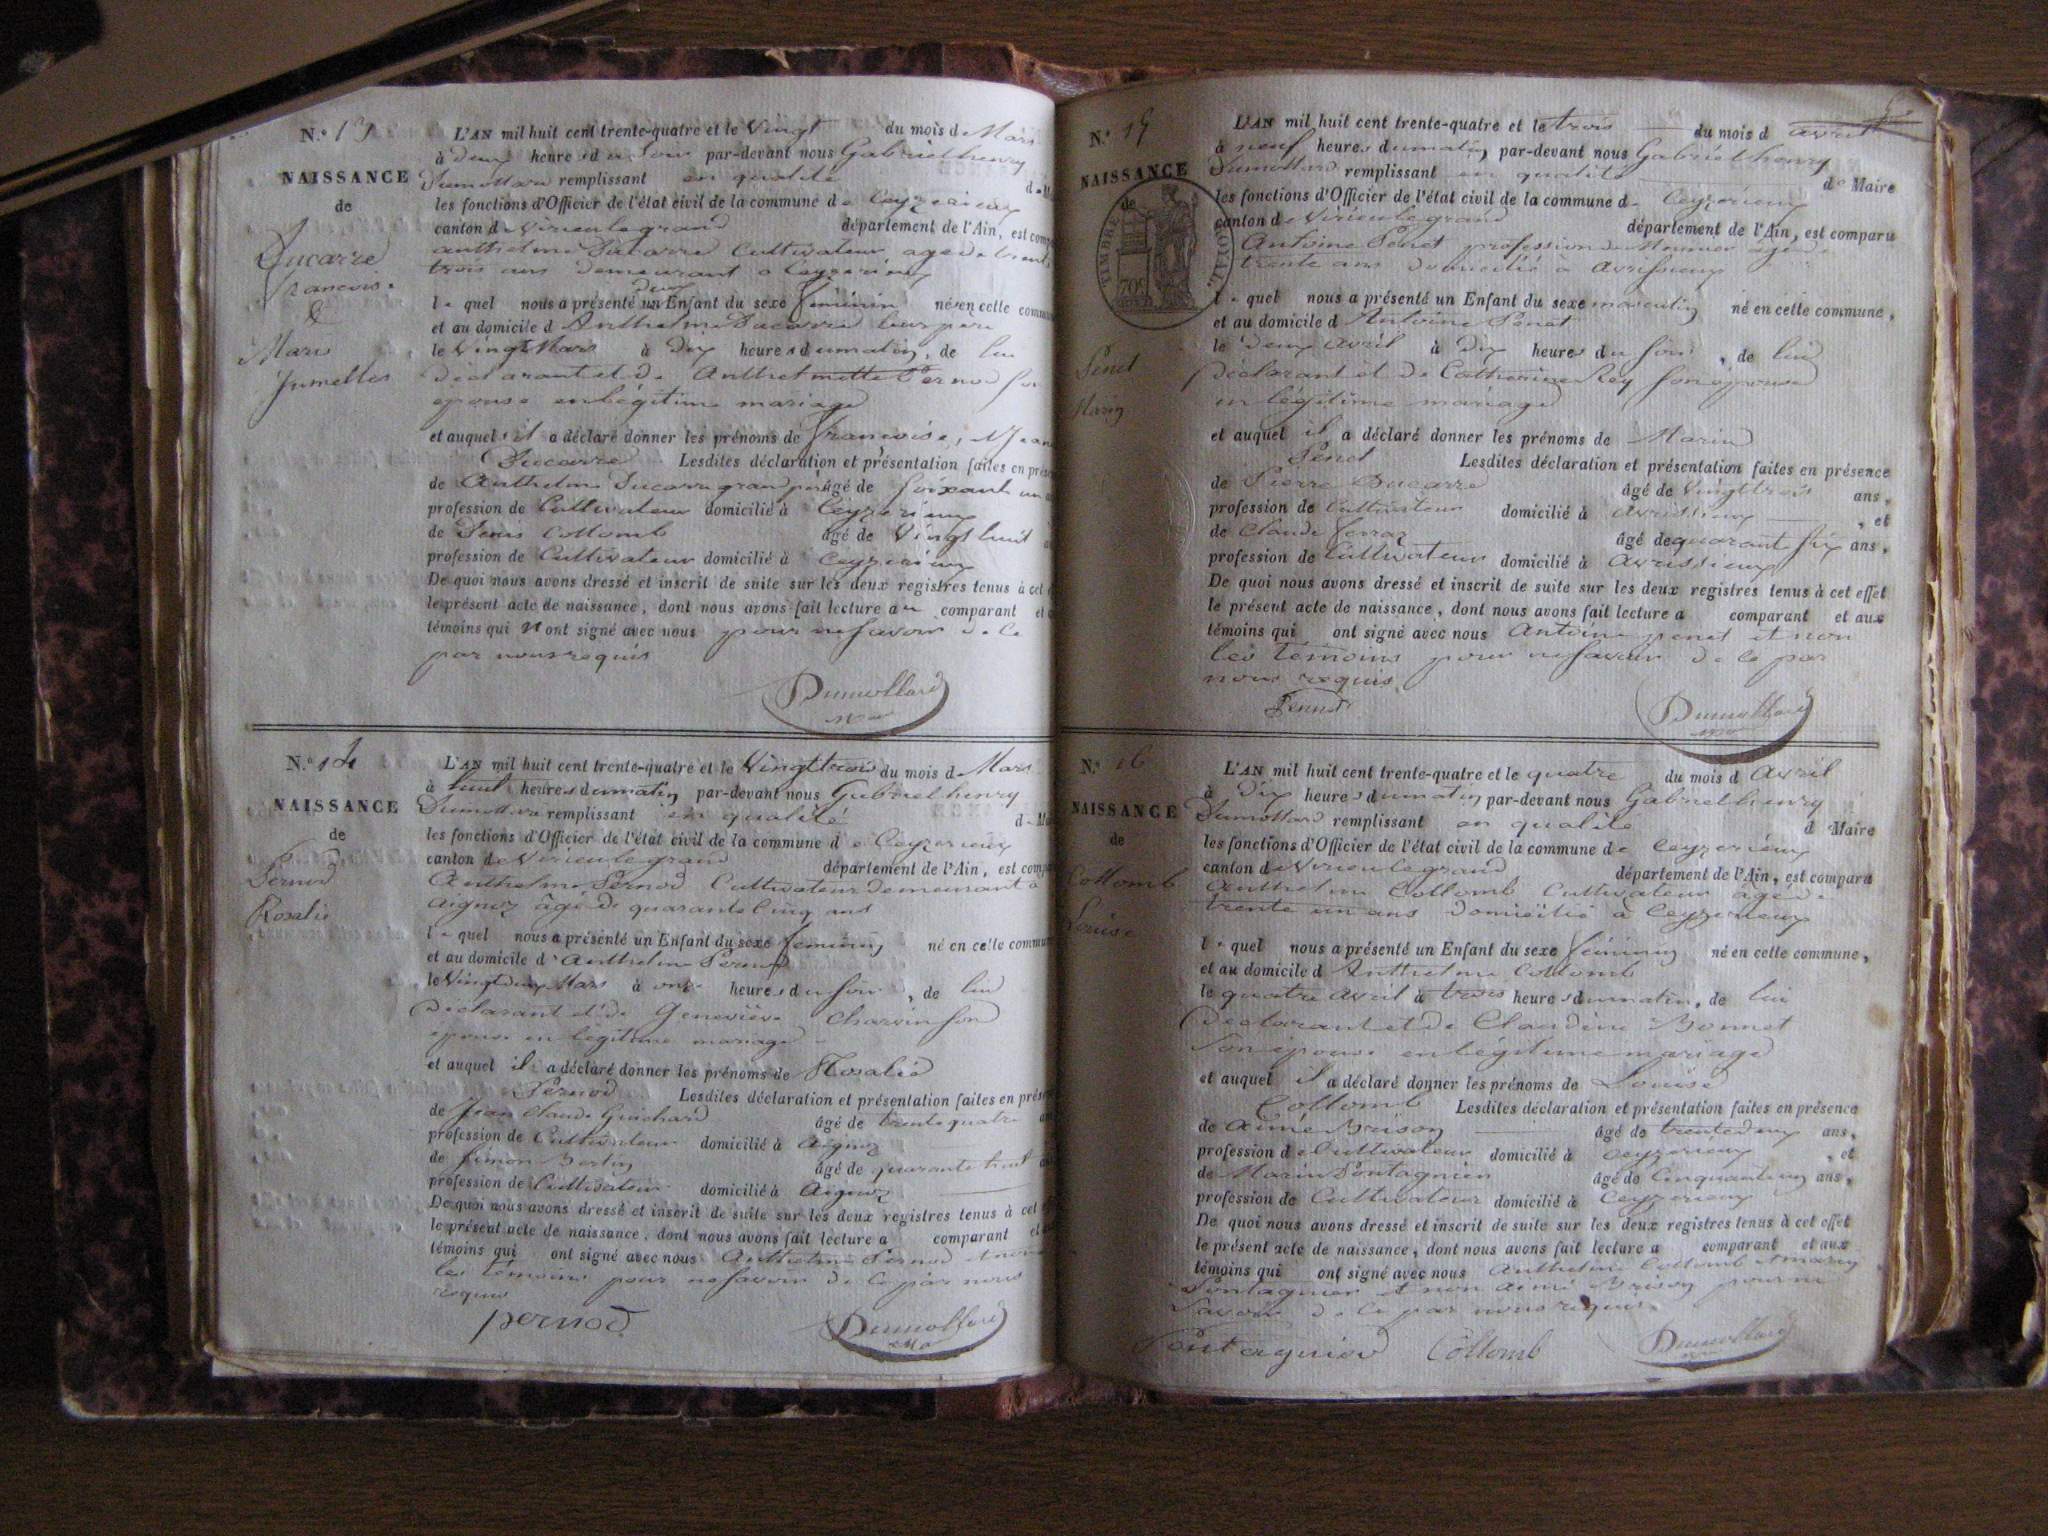 N.° 13
NAISSANCE
de
Ducarre
francoise
&
Marie
Jumelles
L'AN mil huit cent trente-quatre et le Vingt du mois d Mars
à deux heures du Soir par-devant nous Gabriel henry
Dumollard remplissant en qualité d
les fonctions d'Officier de l'état civil de la commune de Ceyzerieux
canton de Virieu le grand département de l'Ain, est
anthelme Ducarre Cultivateur age de trente
trois ans demeurant a Ceyzerieux
deux
le quel nous a présenté un Enfant du sexe féminin nés en cette
et au domicile d Anthelme Ducarre leur père
le Vingt Mars à Dix heures du matin, de lui
déclarant et de Anthelmette Pernod
epouse en légitime mariage
et auquel il a déclaré donner les prénoms de francoise,
Ducarre Lesdites déclaration et présentation faites en
de Anthelme Ducarre grand père âgé de soixante un
profession de Cultivateur domicilié à Ceyzerieux
de Denis Collomb âgé de Vingt huit
profession de Cultivateur domicilié à Ceyzerieux
De quoi nous avons dressé et inscrit de suite sur les deux registres tenus à cet
le présent acte de naissance, dont nous avons fait lecture au comparant et
témoins qui n'ont signé avec nous pour ne savoir de ce
par nous requis
Dumollard
N.° 14
NAISSANCE
de
Pernod
Rosalie
L'AN mil huit cent trente-quatre et le Vingt trois du mois d Mars
à huit heures du matin par-devant nous Gabriel henry
Dumollard remplissant en qualité d
les fonctions d'Officier de l'état civil de la commune de Ceyzerieux
canton de Virieu le grand département de l'Ain, est
Anthelme Pernod Cultivateur demeurant à
Aignoz âgé de quarante cinq ans
le quel nous a présenté un Enfant du sexe féminin né en cette
et au domicile d'anthelme Pernod
le Vingt deux Mars à onze heures du soir, de lui
déclarant et de Geneviève Charvin son
epouse en légitime mariage
et auquel il a déclaré donner les prénoms de Rosalie
Pernod Lesdites déclaration et présentation faites en
de Jean Claude Guichard âgé de trente quatre
profession de Cultivateur domicilié à Aignoz
de Simon Bertin âgé de quarante huit
profession de Cultivateur domicilié à Aignoz
De quoi nous avons dressé et inscrit de suite sur les deux registres tenus à cet
le présent acte de naissance, dont nous avons fait lecture a comparant et
témoins qui ont signé avec nous Anthelme Pernod
les témoins pour ne savoir de ce par nous
requis
pernod
Dumollard
N.° 15
NAISSANCE
de
TIMBRE ROYAL
70
Penet
Marin
L'AN mil huit cent trente-quatre et le trois du mois d avril
à neuf heures du matin par-devant nous Gabriel henry
Dumollard remplissant en qualité de Maire
les fonctions d'Officier de l'état civil de la commune de Ceyzerieux
canton de Virieu le grand département de l'Ain, est comparu
Antoine Penet profession de Meunier âgé de
trente ans domicilié à Avrissieux
le quel nous a présenté un Enfant du sexe masculin né en cette commune,
et au domicile d Antoine Penet
le deux avril à Dix heures du soir, de lui
déclarant et de Catherine Rey son épouse
en légitime mariage
et auquel il a déclaré donner les prénoms de Marin
Penet Lesdites déclaration et présentation faites en présence
de Pierre Ducarre âgé de Vingt trois ans,
profession de Cultivateur domicilié à avrissieux, et
de Claude ferraz âgé de quarante six ans,
profession de Cultivateur domicilié à Avrissieux
De quoi nous avons dressé et inscrit de suite sur les deux registres tenus à cet effet
le présent acte de naissance, dont nous avons fait lecture a comparant et aux
témoins qui ont signé avec nous Antoine penet et non
les témoins pour ne savoir de ce par
nous requis
Pennet
Dumollard
N.° 16
NAISSANCE
de
Collomb
Louise
L'AN mil huit cent trente-quatre et le quatre du mois d Avril
à Dix heures du matin par-devant nous Gabriel henry
Dumollard remplissant en qualité d Maire
les fonctions d'Officier de l'état civil de la commune de Ceyzerieux
canton de Virieu le grand département de l'Ain, est comparu
Anthelme Collomb Cultivateur âgé de
trente un ans domicilié à Ceyzerieux
le quel nous a présenté un Enfant du sexe féminin né en cette commune,
et au domicile d Anthelme Collomb
le quatre Avril à trois heures du matin, de lui
déclarant et de Claudine Bonnet
Son épouse en légitime mariage
et auquel il a déclaré donner les prénoms de Louise
Collomb Lesdites déclaration et présentation faites en présence
de Aimé Brison âgé de trente deux ans,
profession de Cultivateur domicilié à Ceyzerieux, et
de Marin Pontagnier âgé de Cinquante cinq ans,
profession de Cultivateur domicilié à Ceyzerieux
De quoi nous avons dressé et inscrit de suite sur les deux registres tenus à cet effet
le présent acte de naissance, dont nous avons fait lecture a comparant et aux
témoins qui ont signé avec nous Anthelme Collomb
Pontagnier et non aimé Brison pour ne
Savoir de ce par nous requis
Collomb
Dumollard